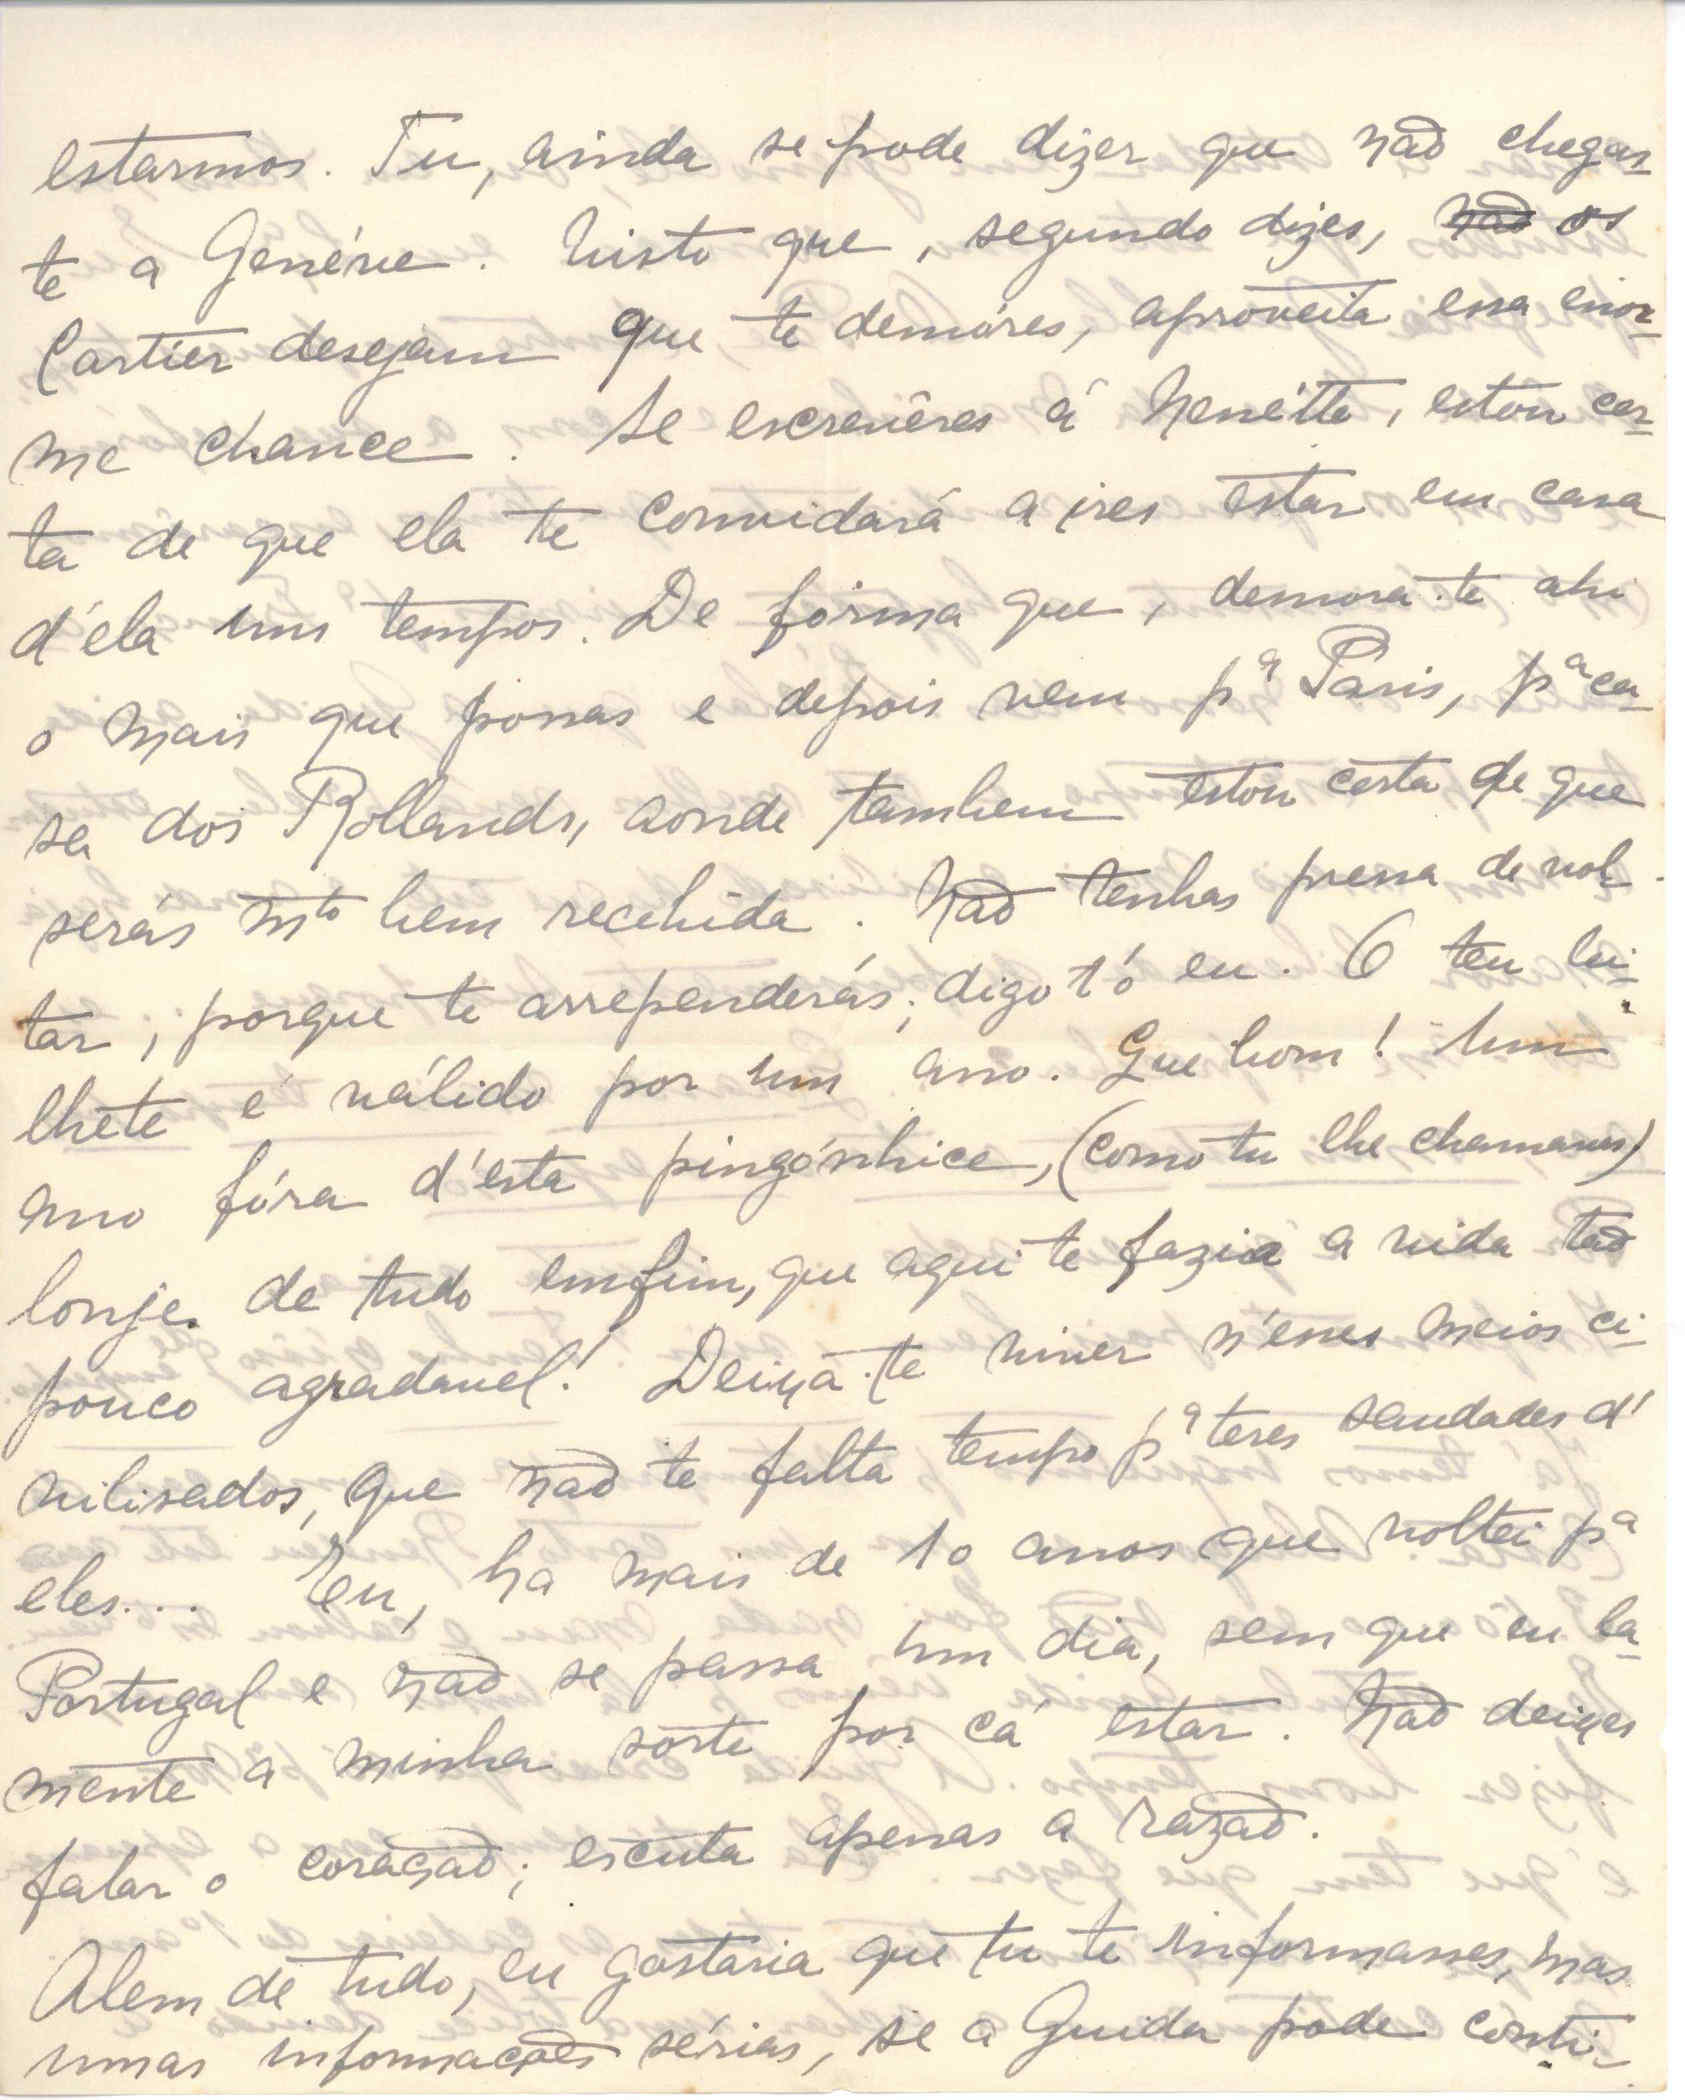 estarmos. Tu, ainda se pode dizer que não chegas-
te a Genéve. Visto que, segundo dizes, ~~não~~ os
Cartier desejam que te demóres, aproveita essa enor-
me chance. Se escrevêres á Nenétte, estou cer-
ta de que ela te convidará a ires estar em casa
d'ela uns tempos. De fórma que, demora-te ahi
o mais que possas e depois vem pª Paris, pª ca-
sa dos Rollands, aonde tambem estou certa de que
serás mto bem recebida. Não tenhas pressa de vol-
tar, porque te arrependerás; digo t'ó eu. O teu bi-
lhete é válido por um ano. Que bom! Um
ano fóra d'esta pingónhice, (como tu lhe chamavas)
lonje de tudo emfim, que aqui te fazia a vida tão
pouco agradavel! Deixa-te viver n'esses meios ci-
vilisados, que não te falta tempo pª teres saudades d'
eles... Eu, ha mais de 10 anos que voltei pª
Portugal e não se passa um dia, sem que eu la-
mente a minha sorte por cá estar. Não deixes
falar o coração; escuta apenas a razão.
Alem de tudo, eu gostaria que tu te informasses, mas
umas informações sérias, se a Guida pode conti-